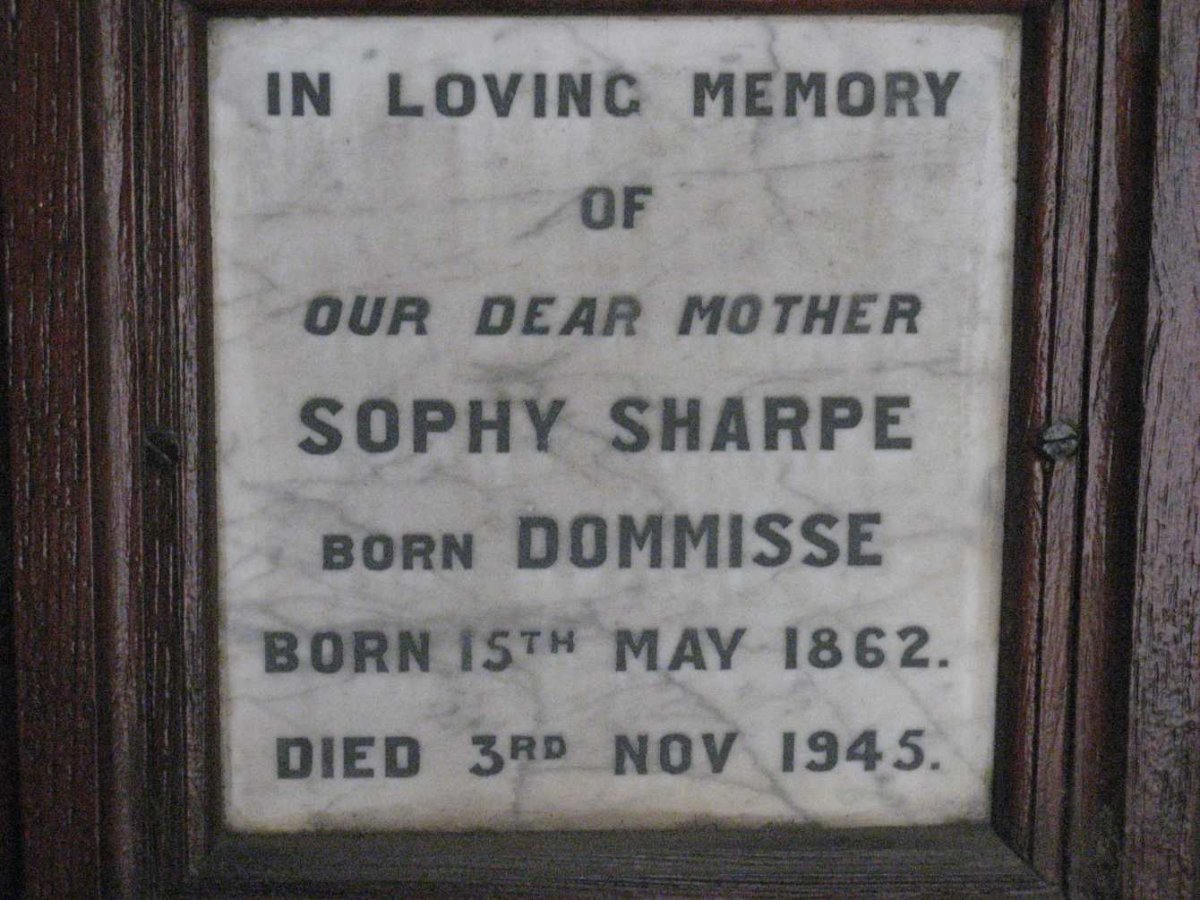 IN LOVING MEMORY
OF
OUR DEAR MOTHER
SOPHY SHARPE
BORN DOMMISSE
BORN 15TH MAY 1862.
DIED 3RD NOV 1945.